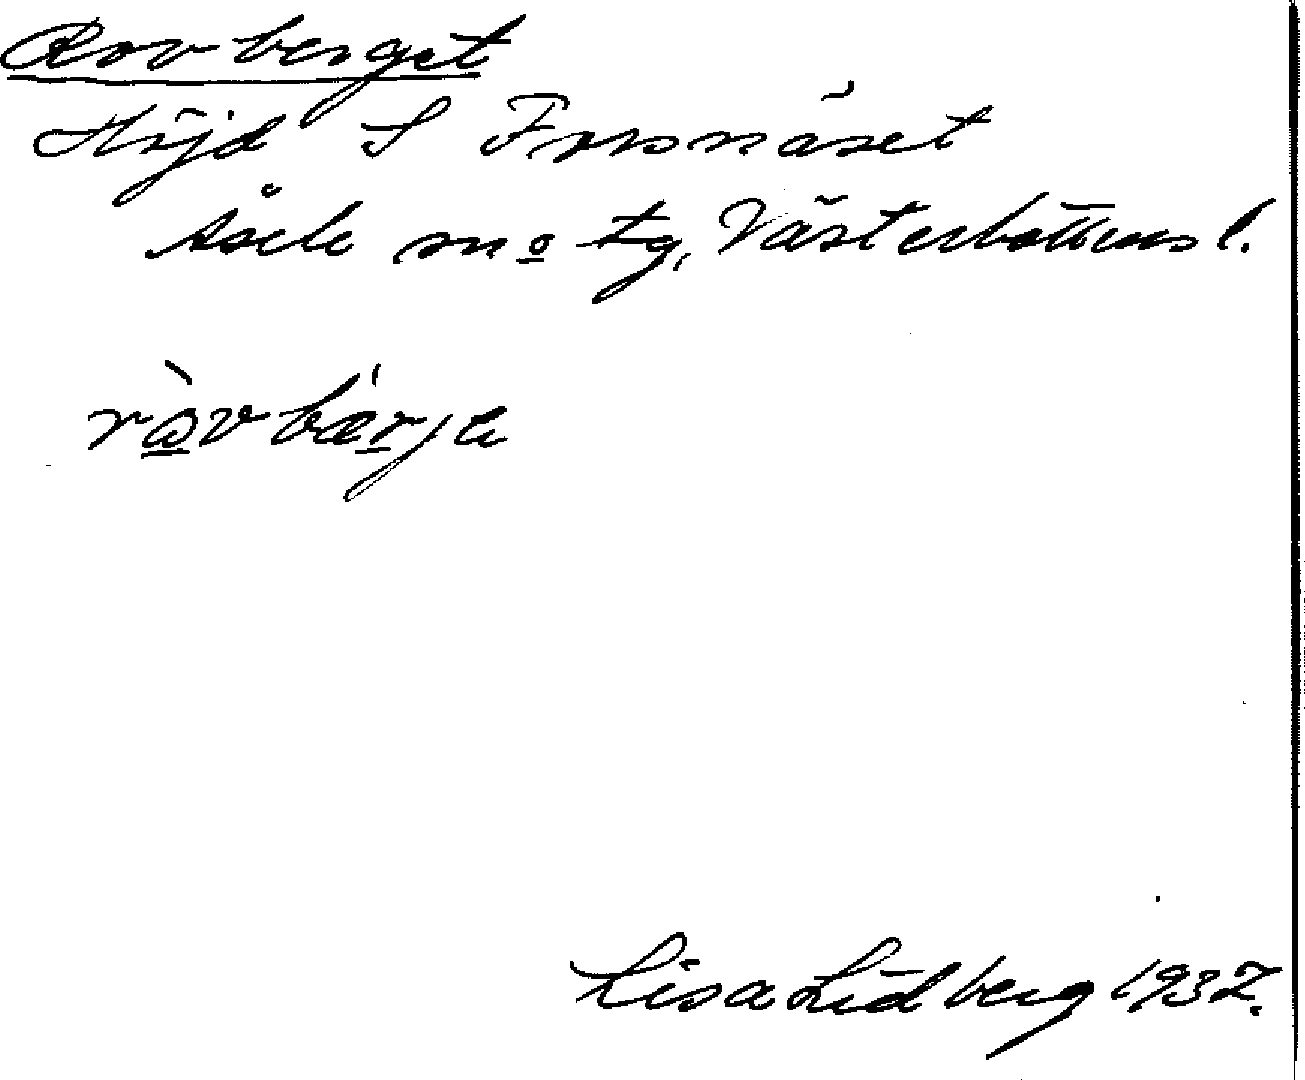 Rovberget
Höjd S Forsnäset
Åsele sn o tg, Västerbottens l.
ràvbǽrje
Lisa Lidberg 1937.